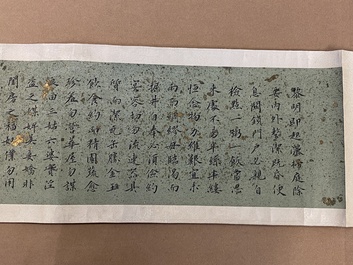 黎明即起灑掃庭除
要內外整潔既昏便
息關鎖門戶必親自
檢點一粥一飯當思
來處不易半絲半縷
恆念物力維艱宜未
雨而綢繆毋臨渴而
掘井自奉必須儉約
宴客切勿流連器具
質而潔瓦缶勝金玉
飲食約而精園蔬愈
珍羞勿營華屋勿謀
良田三姑六婆實淫
盜之媒婢美妾嬌非
閨房之福奴僕勿用